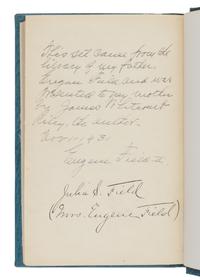 This set came from the
library of my father,
Eugene Field and was
presented to my mother
by James Whitcomb
Riley, the author.
Nov 11, 1931
Eugene Field II
Julia S. Field
(Mrs. Eugene Field)